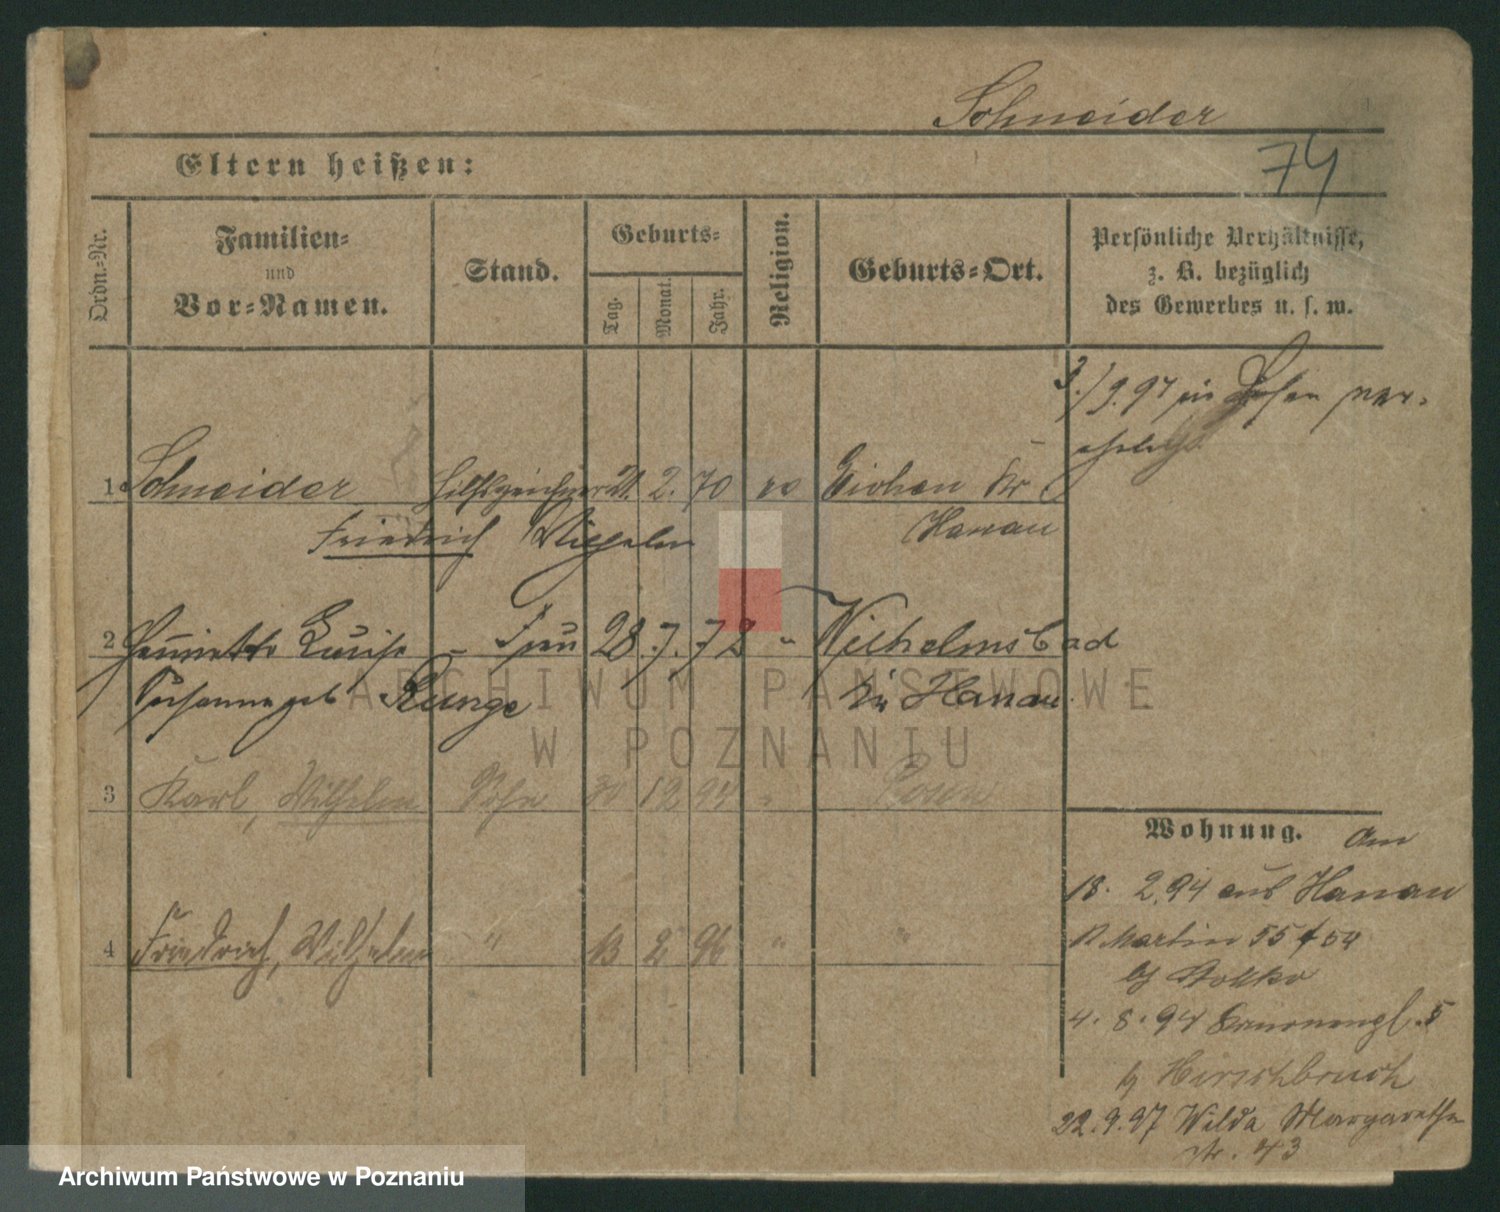 Schneider
74
Eltern heißen:
Ordn.-Nr.
Familien-
und
Vor-Namen.
Stand.
Geburts-
Tag.
Monat.
Jahr.
Religion.
Geburts-Ort.
Persönliche Verhältnisse,
z. B. bezüglich
des Gewerbes u. s. w.
3./9.97 in Posen ver-
1 Schneider Hilfszeichner 21. 2. 70 ev Eichen Kr
Friedrich Wilhelm Hanau
2 Henriette Luise - Frau 28. 7. 72 " Wilhelmsbad
Susanna geb Runge bei Hanau.
3 Karl, Wilhelm Sohn 30 12 94 " Posen
4 Friedrich, Wilhelm " 13 2 96 " "
Wohnung. Am
18. 2.94 aus Hanau
Martin 55
4. 8. 94 5
by Hirschbruch
22.9.97 Wilda Margarethen
str. 43
ARCHIWUM PAŃSTWOWE
W POZNANIU
Archiwum Państwowe w Poznaniu